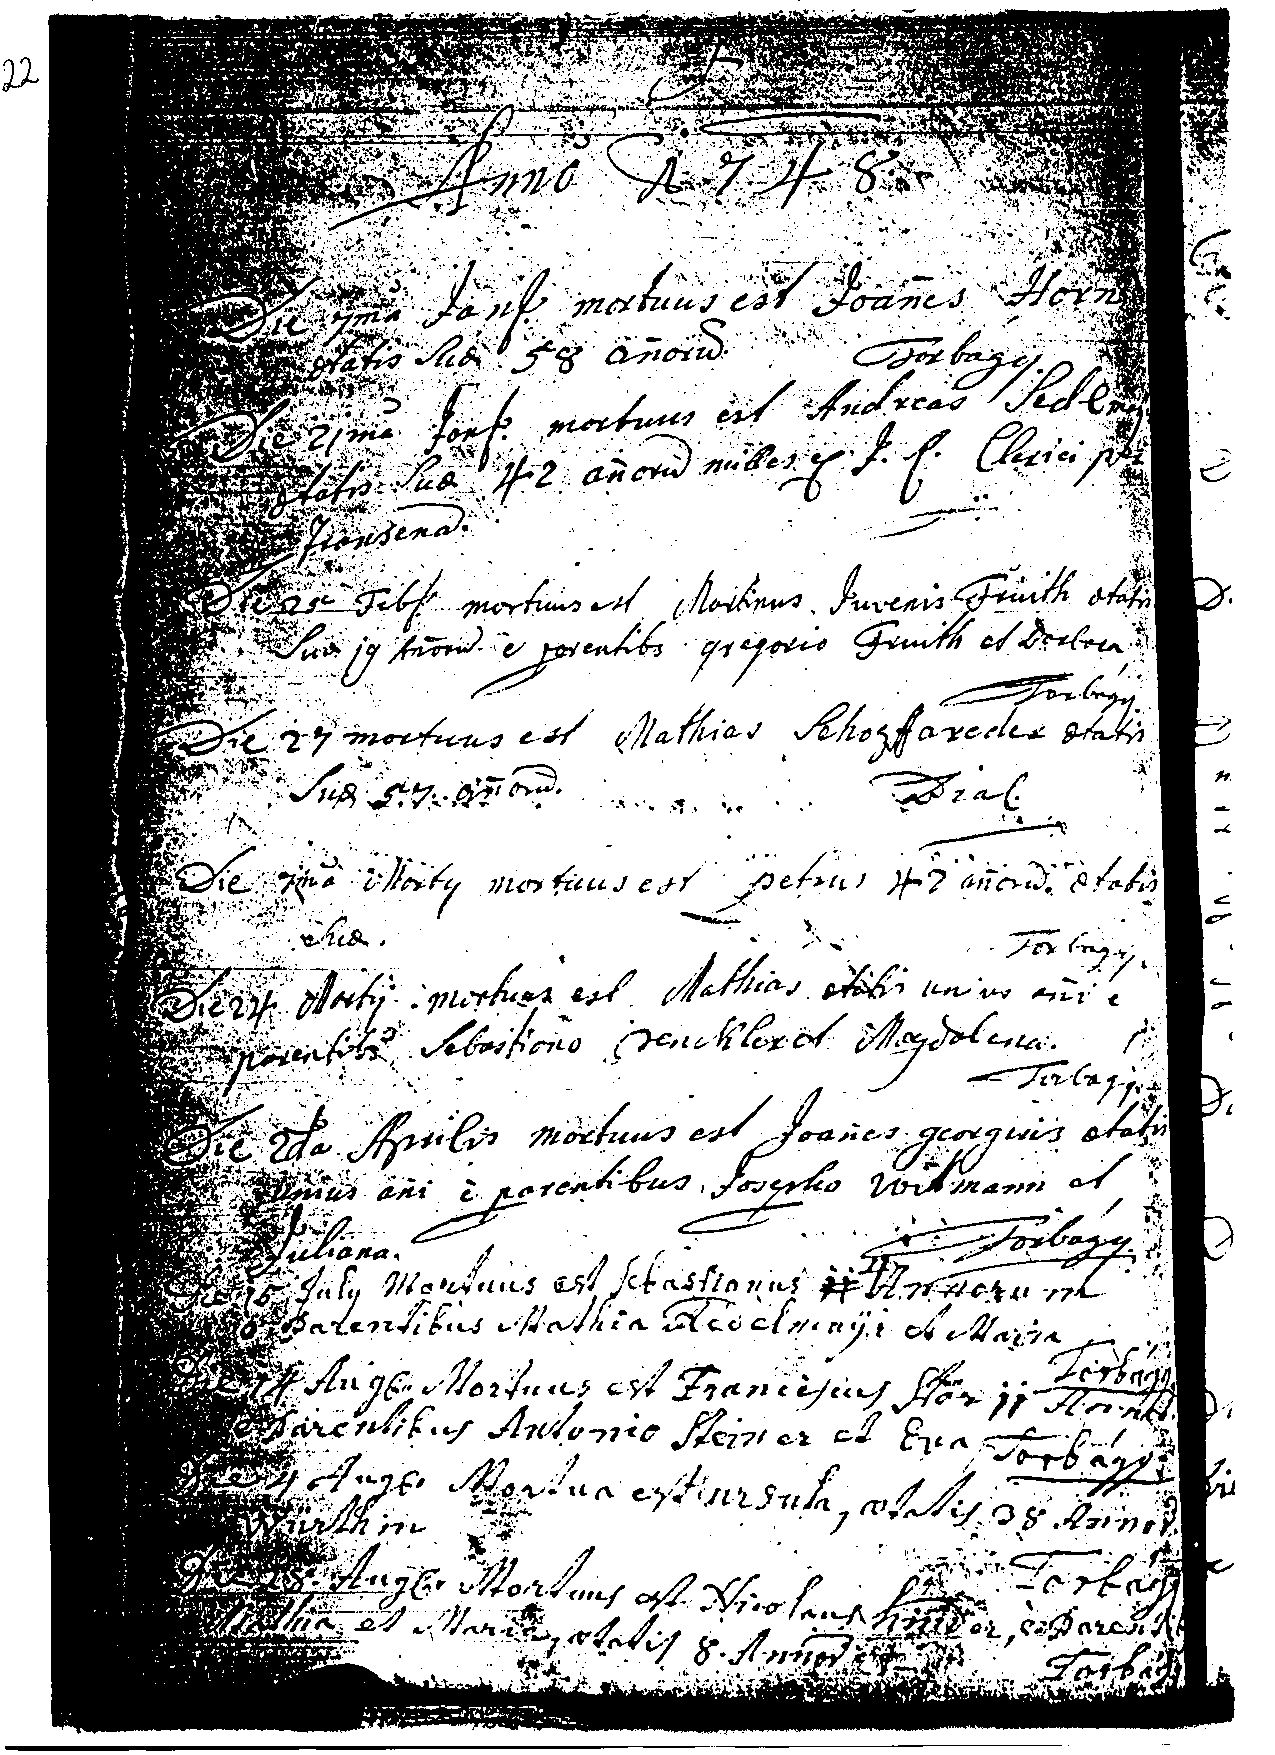 22
Anno 1748
Die 7ma Janr. mortuus est Joañes Horn
ætatis suæ 58 añorũ. Torbágy
Die 21ma Janr. mortuus est Andreas
ætatis suæ 42 añorũ milles ex J. C. Clerici
Die 25 Febr. mortuus est Martinus Juvenis Fruith ætatis
suæ 19 añorũ è parentibs gregorio Fruith et Barbara
Torbágy
Die 27 mortuus est Mathias ætatis
suæ 57. añorũ. Bial
Die 7ma Marty mortuus est petrus 42 añorũ ætatis
suæ. Torbagy.
Die 24 Martij mortuus est Mathias ætatis unius añi e
parentibs Sebastiano et Magdalena.
Torbagy
Die 2da Aprilis mortuus est Joañes georgius ætatis
unius añi è parentibus Josepho Witmann et
Juliana. Torbágy
Die 16 July Mortuus est Sebastianus Annorum
è Parentibus Mathia et Maria
Torbágy
Die 14 Aug. Mortuus est Franciscus 11
è Parentibus Antonio Steiner et Eva Torbágy
Die 4 Aug. Mortua est ursula, ætatis 38 Annor.
Würthin
Torbágy
Die 18. Aug. Mortuus est Nicolaus è Parent
Mathia et Maria, ætatis 8. Annor
Torbágy